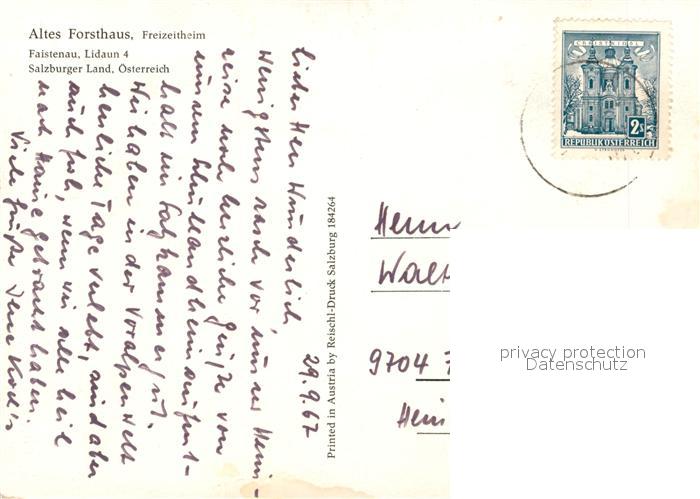 Altes Forsthaus, Freizeitheim
Faistenau, Lidaun 4
Salzburger Land, Österreich
29.9.67
Lieber Herr Wunderlich
Wenigstens noch vor unserer Heim-
reise noch herzliche Grüße von
unserem Schullandheimaufent-
halt im Salzkammergut.
Wir haben in der Voralpenwelt
herrliche Tage verlebt, sind aber
auch froh, wenn wir alle heil
nach Hause gebracht haben.
Viele Grüße Ihre
Printed in Austria by Reischl-Druck Salzburg 184264
CHRISTKINDL
2S
REPUBLIK ÖSTERREICH
Herrn
Walt
9704
Hein
privacy protection
Datenschutz